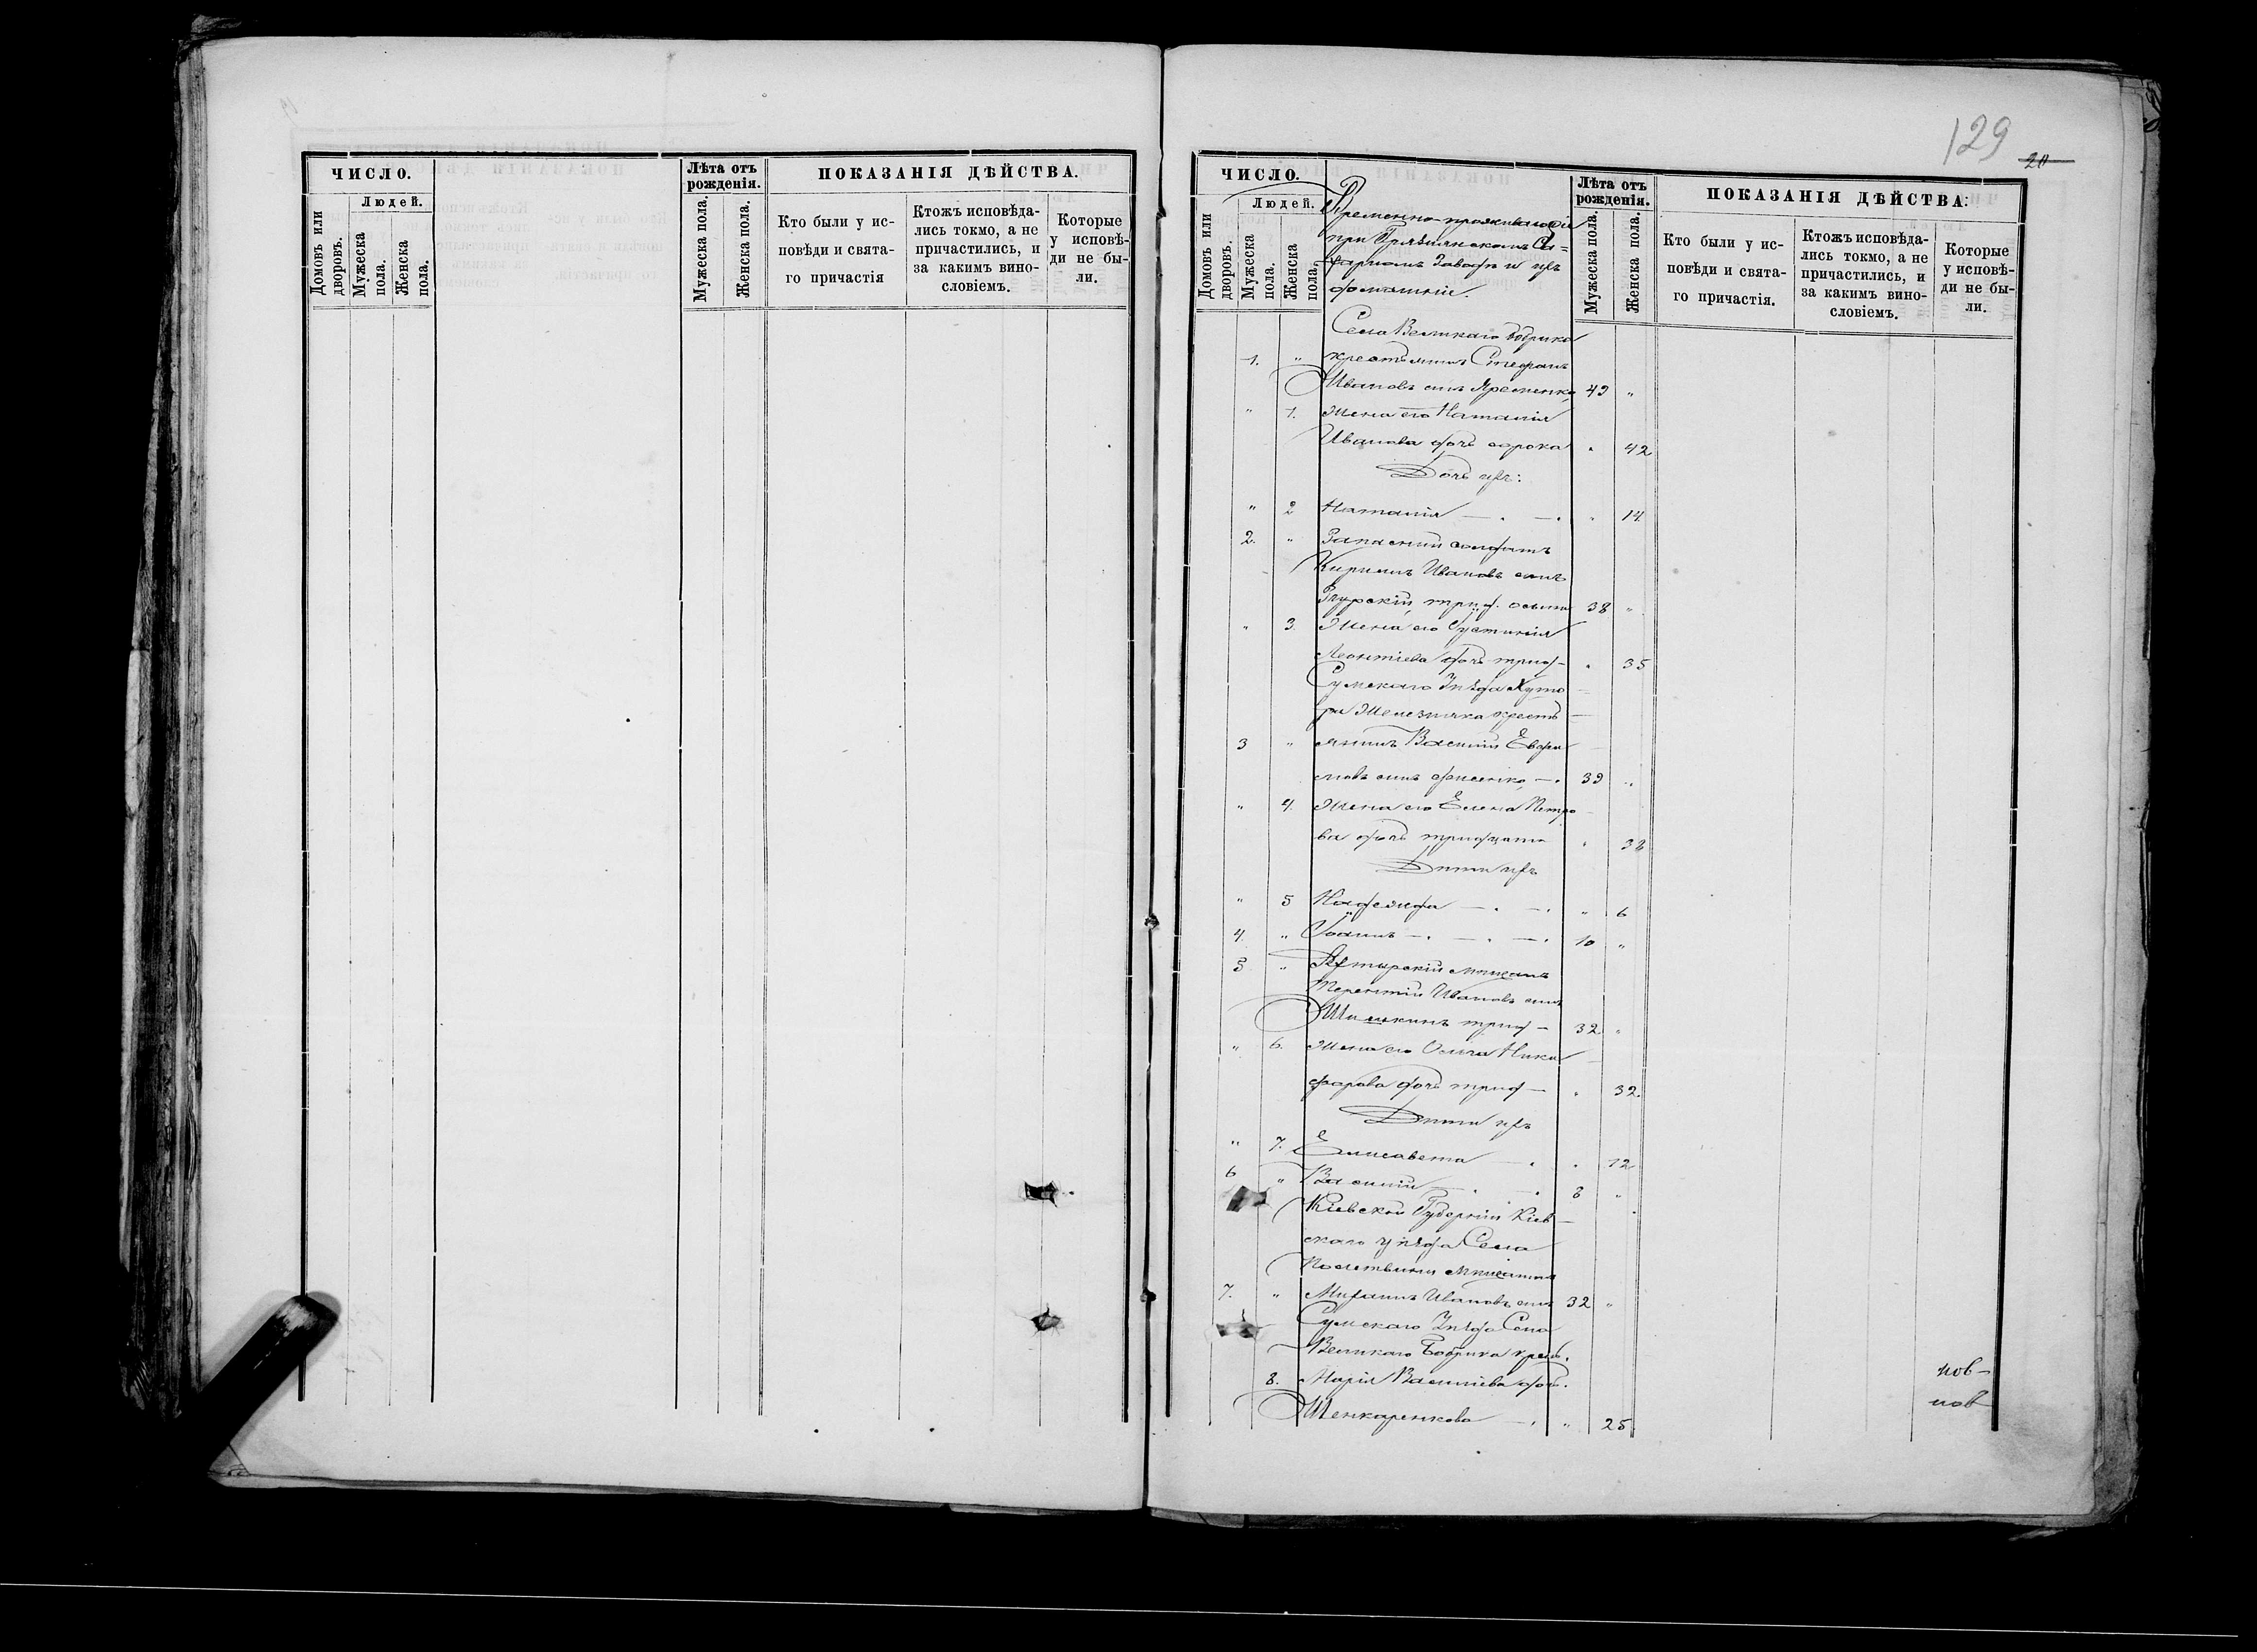 ЧИСЛО.
Лѣта отъ рожденія.
ПОКАЗАНІЯ ДѢЙСТВА.
Людей.
Домовъ или дворовъ.
Мужеска пола.
Женска пола.
Мужеска пола.
Женска пола.
Кто были у ис-
повѣди и свята-
го причастія
Ктожъ исповѣда-
лись токмо, а не
причастились, и
за какимъ вино-
словіемъ.
Которые
у исповѣ-
ди не бы-
ли.
129
20
ЧИСЛО.
Лѣта отъ рожденія.
ПОКАЗАНІЯ ДѢЙСТВА.
Людей.
Домовъ или дворовъ.
Мужеска пола.
Женска пола.
Мужеска пола.
Женска пола.
Кто были у ис-
повѣди и свята-
го причастія.
Ктожъ исповѣда-
лись токмо, а не
причастились, и
за какимъ вино-
словіемъ.
Которые
у исповѣ-
ди не бы-
ли.
Временно-проживающіе
при Са-
харномъ Заводѣ и ихъ
домашніе.
Села Великаго Бобрика
1. " крестьянинъ Стефанъ
Ивановъ сынъ Яременко 49 "
" 1. Жена его Наталія
Иванова дочь сорока " 42
Дочь ихъ:
" 2 Наталія " 14
2. " Запасный солдатъ
Кириллъ Ивановъ сынъ
38 "
" 3. Жена его Іустинія
Леонтіева дочь трид- " 35
Сумскаго Уѣзда Хуто
ра Железняка кресть
3 " янинъ Василій Евдоки
мовъ сынъ 39 "
" 4. Жена его Елена Петро
ва дочь тридцати " 38
Дѣти ихъ
" 5 Надежда " 6
4. " Іоаннъ 10 "
5 " Ахтырскій мѣщанъ
Терентій Ивановъ сынъ
Шишкинъ трид- 32 "
" 6. Жена его Ольга Ники
форова дочь трид- " 32.
Дѣти ихъ
" 7. Елисавета " 12
6 " Василій 8 "
Кіевской Губерніи Кіев
скаго уѣзда Села
мѣщанинъ
7. " Михаилъ Ивановъ сынъ 32 "
Сумскаго Уѣзда Села
Великаго Бобрика крест.
8. Марія Василіева доч.
Шенкаренкова " 25